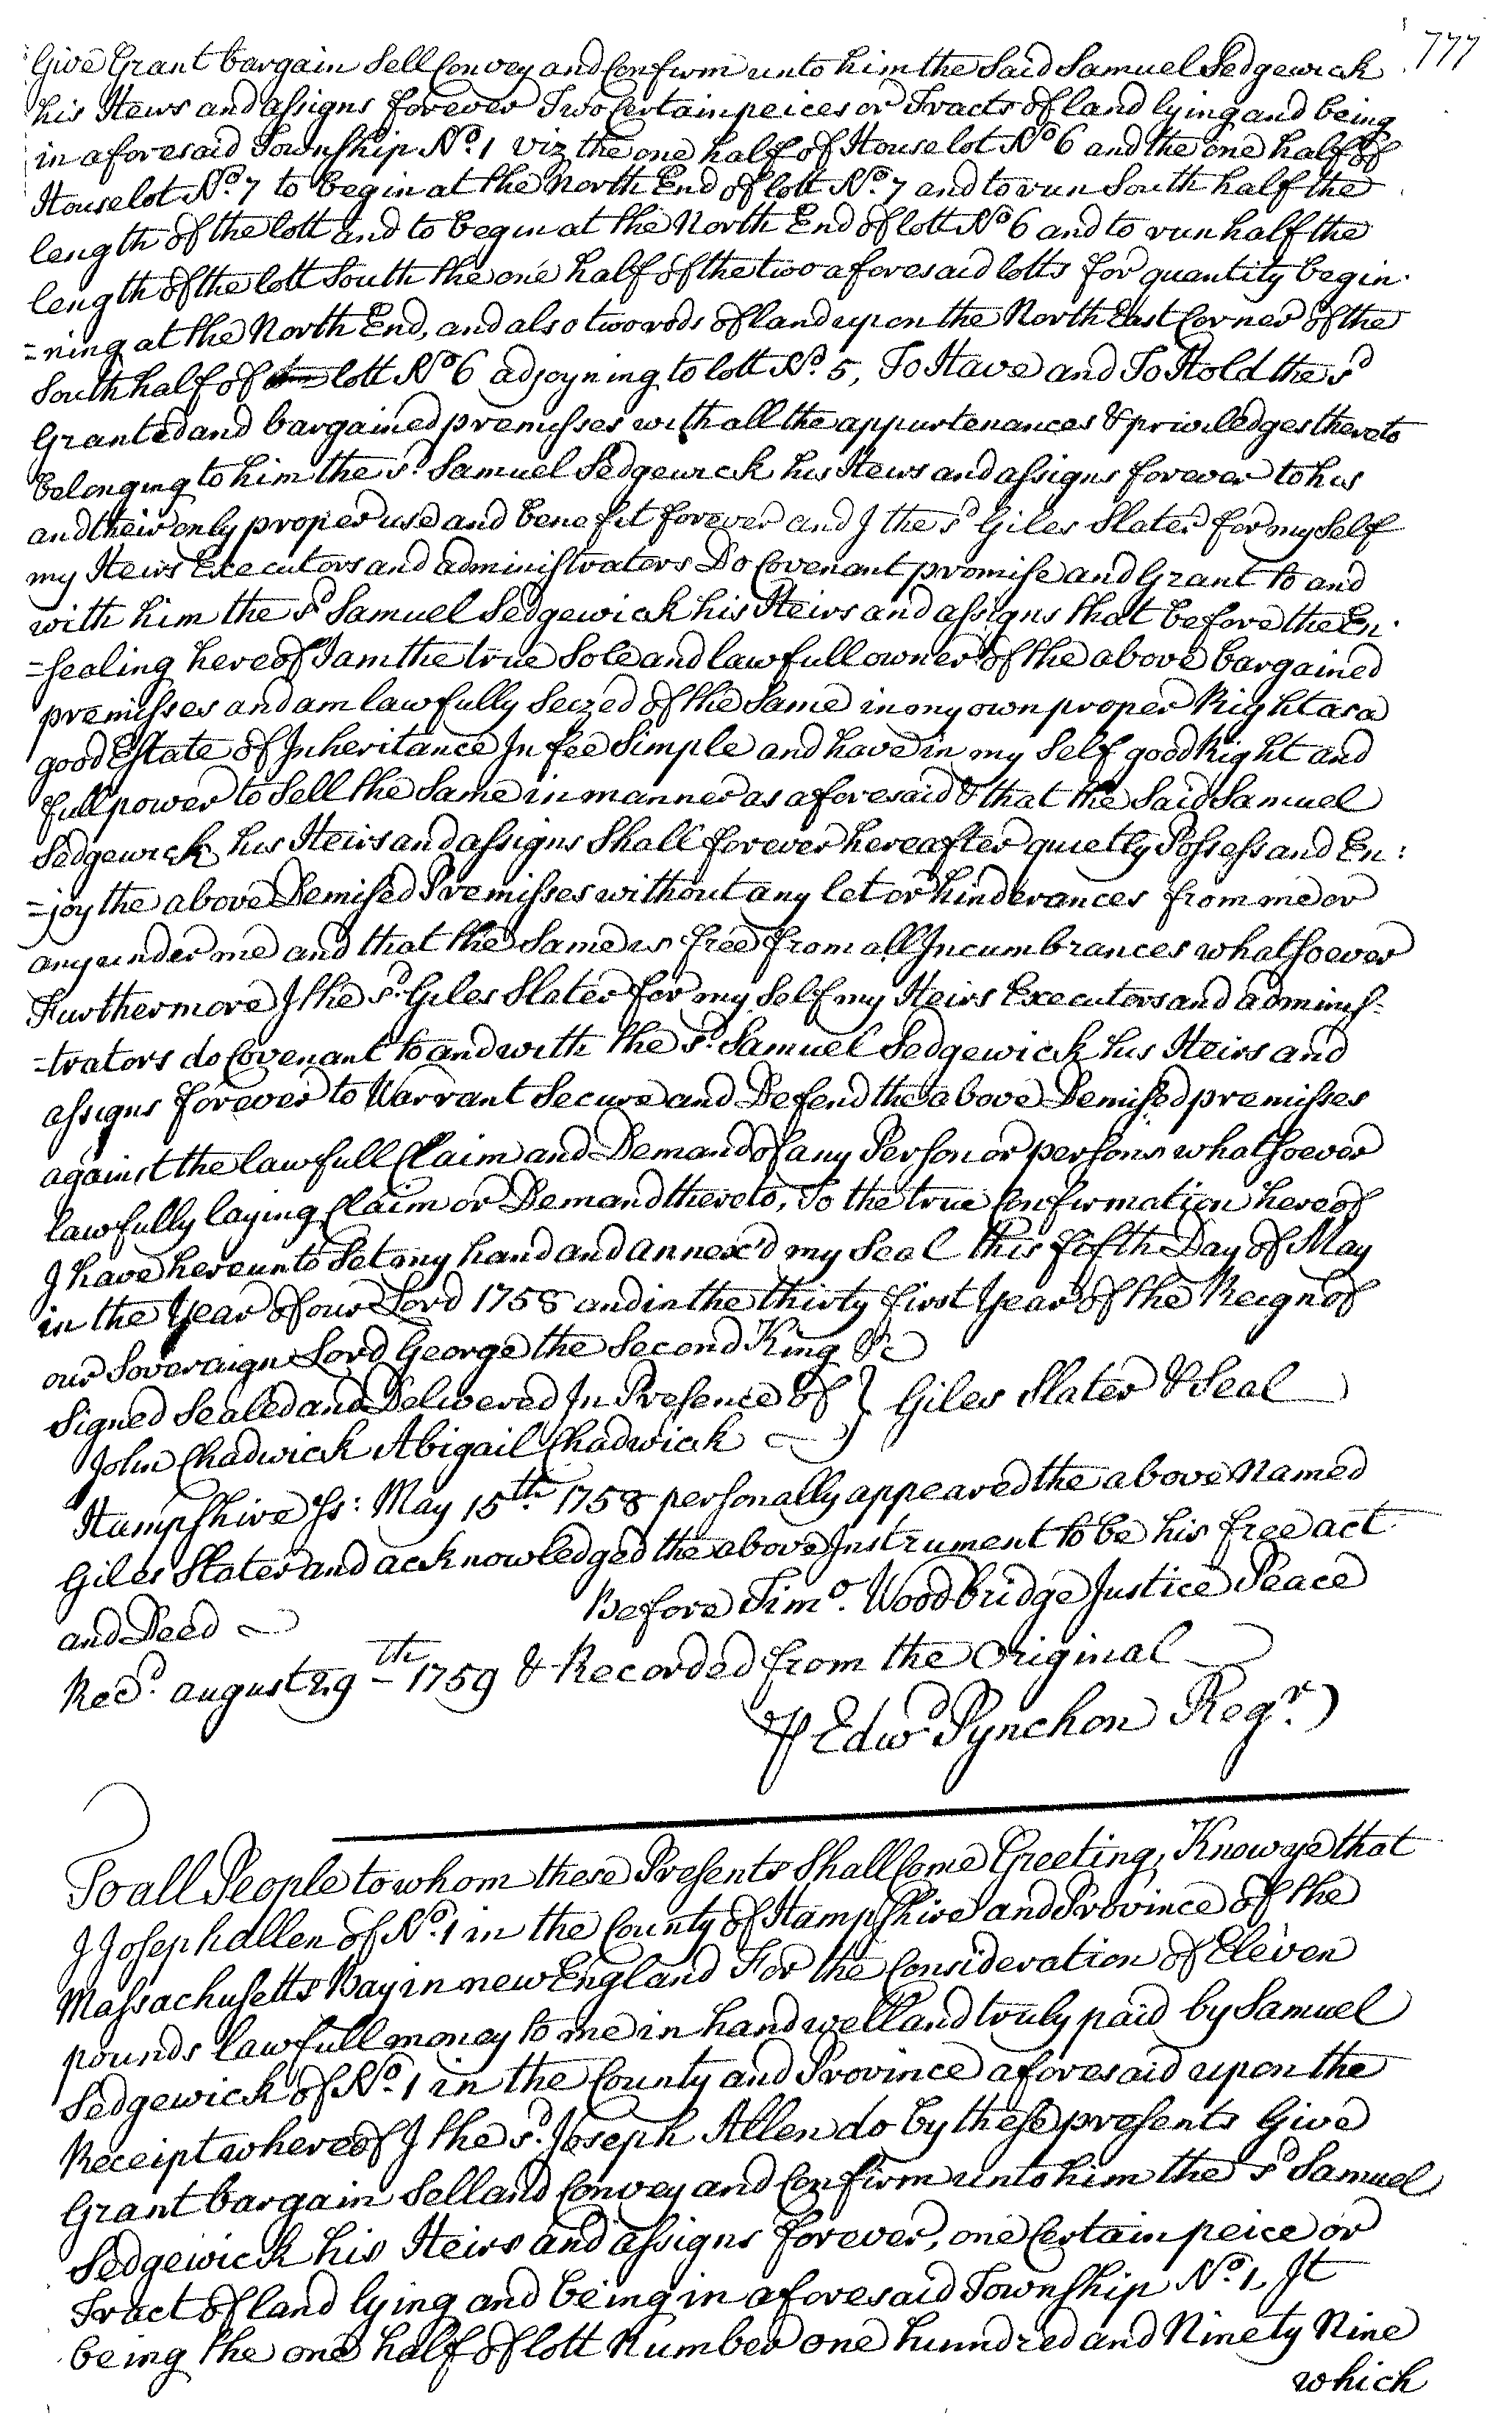 777
Give Grant bargain Sell Convey and Confirm unto him the Said Samuel Sedgewick
his Heirs and assigns forever Two Certain peices or Tracts of land lying and being
in aforesaid Township No. 1 viz the one half of House lot No 6 and the one half of
House lot No. 7 to begin at the North End of lott No. 7 and to run South half the
length of the lott and to begin at the North End of lott No 6 and to run half the
length of the lott South the one half of the two aforesaid lotts for quantity begin
=ning at the North End, and also two rods of land upon the North East Corner of the
South half of lott No 6 adjoyning to lott No. 5, To Have and To Hold the sd
Granted and bargained premisses with all the appurtenances & priviledges thereto
belonging to him the sd. Samuel Sedgewick his Heirs and assigns forever to his
and their only proper use and benefit forever and I the sd Giles Slater for my Self
my Heirs Executors and administrators Do Covenant promise and Grant to and
with him the sd Samuel Sedgewick his Heirs and assigns that before the En
=sealing hereof I am the true Sole and lawfull owner of the above bargained
premisses and am lawfully Seized of the Same in my own proper Right as a
good Estate of Inheritance In fee Simple and have in my Self good Right and
full power to Sell the Same in manner as aforesaid & that the Said Samuel
Sedgewick his Heirs and assigns Shall forever hereafter quietly Possess and En:
=joy the above Demised Premisses without any let or hinderances from me or
any under me and that the Same is free from all Incumbrances whatsoever
Furthermore I the sd. Giles Slater for my Self my Heirs Executors and adminis
=trators do Covenant to and with the sd. Samuel Sedgewick his Heirs and
assigns forever to Warrant Secure and Defend the above Demised premisses
against the lawfull Claim and Demand of any Person or persons whatsoever
lawfully laying Claim or Demand thereto, To the true Confirmation hereof
I have hereunto Set my hand and annex'd my Seal this fifth Day of May
in the Year of our Lord 1758 and in the thirty first Year of the Reign of
our Soveraign Lord George the Second King &c
Signed Sealed and Delivered In Presence of } Giles Slater & Seal
John Chadwick Abigail Chadwick
Hampshire ss: May 15th. 1758 personally appeared the above Named
Giles Slater and acknowledged the above Instrument to be his free act
and Deed Before Timo. Woodbridge Justice Peace
Recd. august 29th 1759 & Recorded from the Original
P Edwd Pynchon Regr.
To all People to whom these Presents Shall Come Greeting, Know ye that
I Joseph allen of No. 1 in the County of Hampshire and Province of the
Massachusetts Bay in new England For the Consideration of Eleven
pounds lawfull money to me in hand well and truly paid by Samuel
Sedgewick of No. 1 in the County and Province aforesaid upon the
Receipt whereof I the sd. Joseph Allen do by these presents Give
Grant bargain Sell and Convey and Confirm unto him the sd Samuel
Sedgewick his Heirs and assigns forever, one Certain peice or
Tract of land lying and being in aforesaid Township No. 1, It
being the one half of lott Number one hunndred and Ninety Nine
which